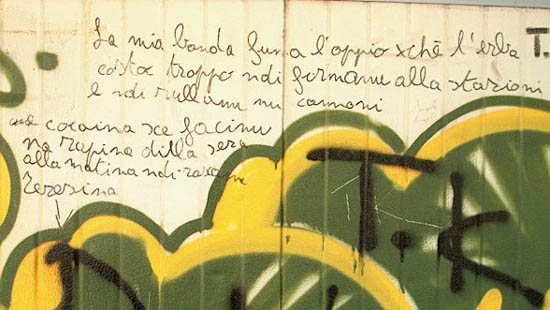 La mia banda fuma l'oppio xchè l'erba
costa troppo ndi fermamu alla stazioni
e ndi rullamu nu cannoni
cocaina facimu
na rapina dilla sera
alla matina ndi
T.
T.K